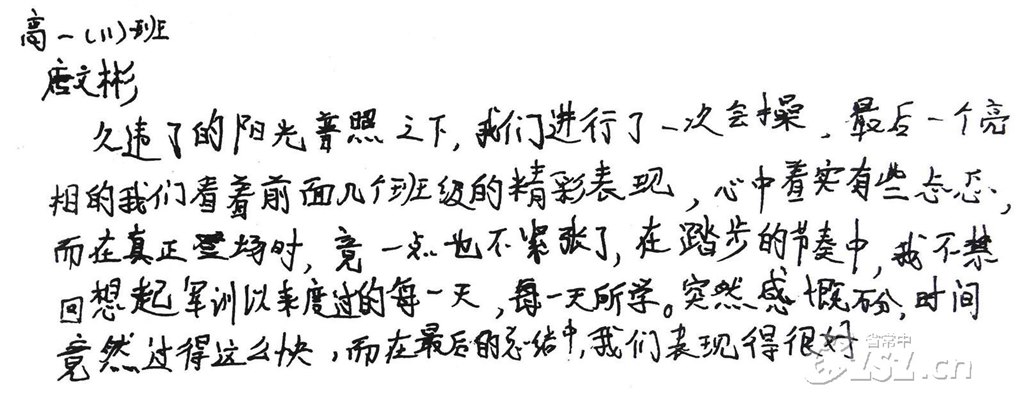 高一(11)班
唐文彬
久违了的阳光普照之下,我们进行了一次会操,最后一个亮
相的我们看着前面几个班级的精彩表现,心中着实有些忐忑,
而在真正登场时,竟一点也不紧张了,在踏步的节奏中,我不禁
回想起军训以来度过的每一天,每一天所学。突然感慨万分,时间
竟然过得这么快,而在最后的总结中,我们表现得很好
省常中
CSZ.cn